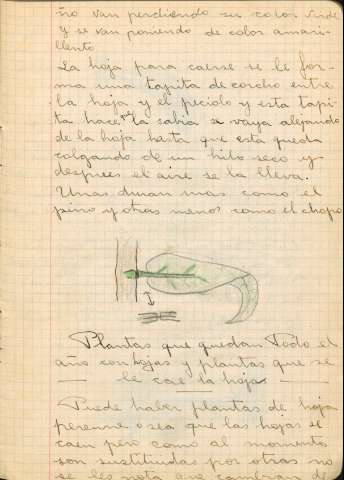 ño van perdiendo su color verde
y se van poniendo de color amari-
llento
La hoja para caerse se le for-
ma una tapita de corcho entre
la hoja y el peciolo y esta tapi-
ta hace que la sabia se vaya alejando
de la hoja hasta que esta queda
colgando de un hilo seco y
despues el aire se la lleva.
Unas duran mas como el
pino y otras menos como el chopo
Plantas que quedan Todo el
año con hojas y plantas que se
le cae la hoja
Puede haber plantas de hoja
perenne o sea que las hojas se
caen pero como al momento
son sustituidas por otras no
se les nota que cambian de